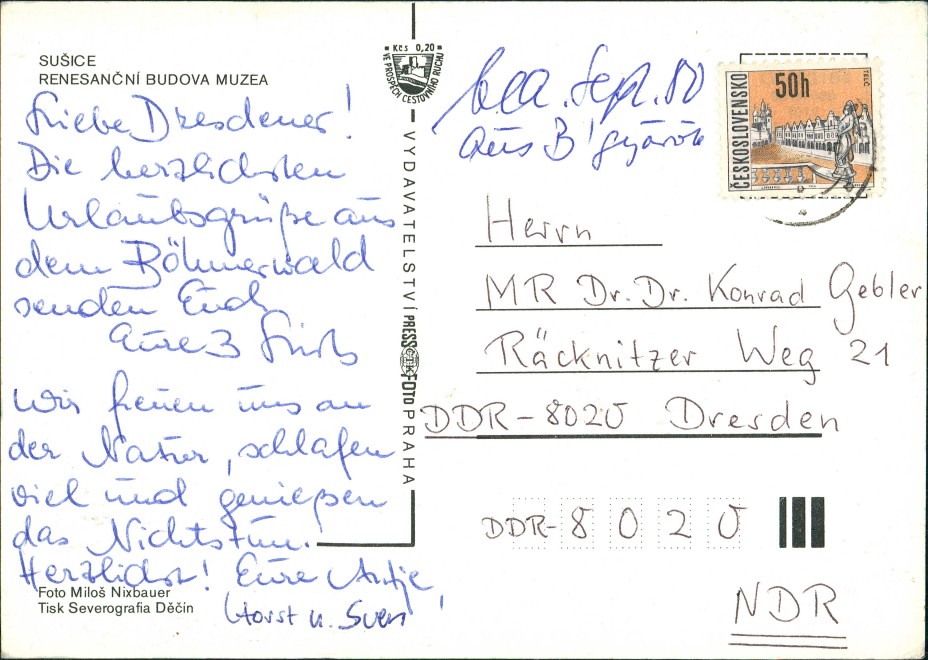 SUŠICE
RENESANČNÍ BUDOVA MUZEA
Liebe Dresdener!
Die herzlichsten
Urlaubsgrüße aus
dem Böhmerwald
senden Euch
Eure 3
Wir freuen uns an
der Natur, schlafen
viel und genießen
das Nichtstun.
Herzlichst! Eure Antje,
Horst u. Sven
Foto Miloš Nixbauer
Tisk Severografia Děčín
Kčs 0,20
VE PROSPĚCH CESTOVNÍHO RUCHU
VYDAVATELSTVÍ PRESSFOTO PRAHA
ČTK
Sept. 80
aus B'
ČESKOSLOVENSKO
50h
TELČ
Herrn
MR Dr. Dr. Konrad Gebler
Räcknitzer Weg 21
DDR-8020 Dresden
DDR-8020
NDR